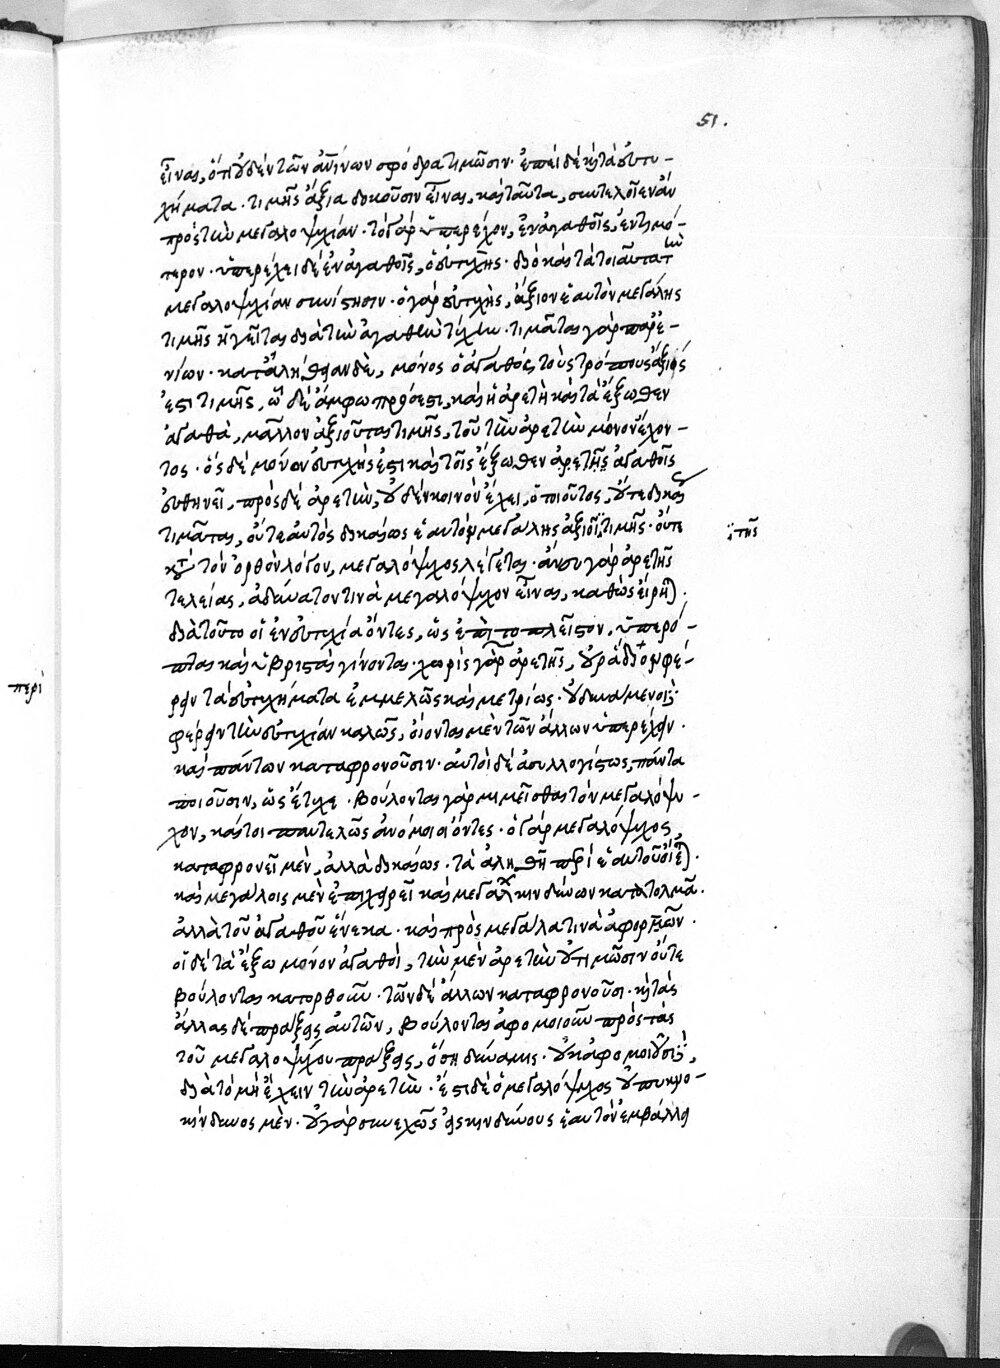 51.
εἶναι, ὅτι οὐδὲν τῶν ἀνίνων σφόδρα τιμῶσιν· ἐπεὶ δὲ καὶ τὰ εὐτυ-
χήματα· τιμῆς ἄξια δοκοῦσιν εἶναι, καὶ ταῦτα, συντελοῖεν ἂν
πρὸς τὴν μεγαλοψυχίαν· τὸ γὰρ ὑπερέχον, ἐν ἀγαθοῖς, ἐντιμό-
τερον· ὑπερέχει δὲ ἐν ἀγαθοῖς, ὁ εὐτυχής· διὸ καὶ τὰ τοιαῦτα τὴν
μεγαλοψυχίαν συνίστησιν· ὁ γὰρ εὐτυχὴς, ἄξιον ἑαυτὸν μεγάλης
τιμῆς ἡγεῖται διὰ τὴν ἀγαθὴν τύχην· τιμᾶται γὰρ παρ' ἐ-
νίων· κατ' ἀλήθειαν δὲ, μόνος ὁ ἀγαθὸς τοὺς τρόπους ἄξιός
ἐστι τιμῆς, ᾧ δὲ ἄμφω πρόσεστι, καὶ ἡ ἀρετὴ καὶ τὰ ἔξωθεν
ἀγαθὰ, μᾶλλον ἀξιοῦται τιμῆς, τοῦ τὴν ἀρετὴν μόνον ἔχον-
τος· ὃς δὲ μόνον εὐτυχής ἐστι καὶ τοῖς ἔξωθεν ἀρετῆς ἀγαθοῖς
εὐθηνεῖ, πρὸς δὲ ἀρετὴν, οὐδὲν κοινὸν ἔχει, ὁ τοιοῦτος, οὔτε δικαίως
τιμᾶται, οὔτε αὐτὸς δικαίως ἑαυτὸν μεγάλης ἀξιοῖ τιμῆς· οὔτε
κατὰ τὸν ὀρθὸν λόγον, μεγαλόψυχος λέγεται· ἄνευ γὰρ ἀρετῆς
τῆς
τελείας, ἀδύνατον τινὰ μεγαλόψυχον εἶναι, καθὼς εἴρηται.
διὰ τοῦτο οἱ ἐν εὐτυχία ὄντες, ὡς ἐπὶ τὸ πλεῖστον, ὑπερό-
πται καὶ ὑβρισταὶ γίνονται· χωρὶς γὰρ ἀρετῆς, οὐ ῥάδιον φέ-
ρειν τὰ εὐτυχήματα ἐμμελῶς καὶ μετρίως· οὐ δυνάμενοι
περὶ
φέρειν τὴν εὐτυχίαν καλῶς, οἴονται μὲν τῶν ἄλλων ὑπερέχειν·
καὶ πάντων καταφρονοῦσιν· αὐτοὶ δὲ ἀσυλλογίστως, πάντα
ποιοῦσιν, ὡς ἔτυχε· βούλονται γὰρ μιμεῖσθαι τὸν μεγαλόψυ-
χον, καίτοι παντελῶς ἀνόμοιοι ὄντες· ὁ γὰρ μεγαλόψυχος
καταφρονεῖ μὲν, ἀλλὰ δικαίως· τὰ ἀληθῆ περὶ ἑαυτοῦ οἴεται.
καὶ μεγάλοις μὲν ἐπιχειρεῖ καὶ μεγάλων κινδύνων κατατολμᾶ.
ἀλλὰ τοῦ ἀγαθοῦ ἕνεκα· καὶ πρὸς μεγάλα τινὰ ἀφορῶν.
οἱ δὲ τὰ ἔξω μόνον ἀγαθοὶ, τὴν μὲν ἀρετὴν οὐ τιμῶσιν οὔτε
βούλονται κατορθοῦν· τῶν δὲ ἄλλων καταφρονοῦσι· καὶ τὰς
ἄλλας δὲ πράξεις αὐτῶν, βούλονται ἀφομοιοῦν πρὸς τὰς
τοῦ μεγαλοψύχου πράξεις, ὅση δύναμις· οὐκ ἀφομοιοῦσι δὲ,
διὰ τὸ μὴ ἔχειν τὴν ἀρετήν· ἔστι δὲ ὁ μεγαλόψυχος οὐ πυκνο-
κίνδυνος μὲν· οὐ γὰρ συνεχῶς εἰς κινδύνους ἑαυτὸν ἐμβάλλει